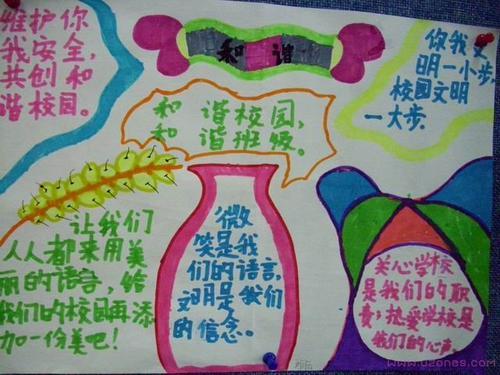 维护你
我安全,
共创和
谐校园。
和谐
你我文
明一小步
校园文明
一大步.
和谐校园,
和谐班级。
让我们
人人都来用美
丽的语言,给
我们的校园再添
加一份美吧!
微
笑是我
们的语言,
文明是我们
的信念。
关心学校
是我们的职
责;热爱学校是
我们的心声
www.uzones.com